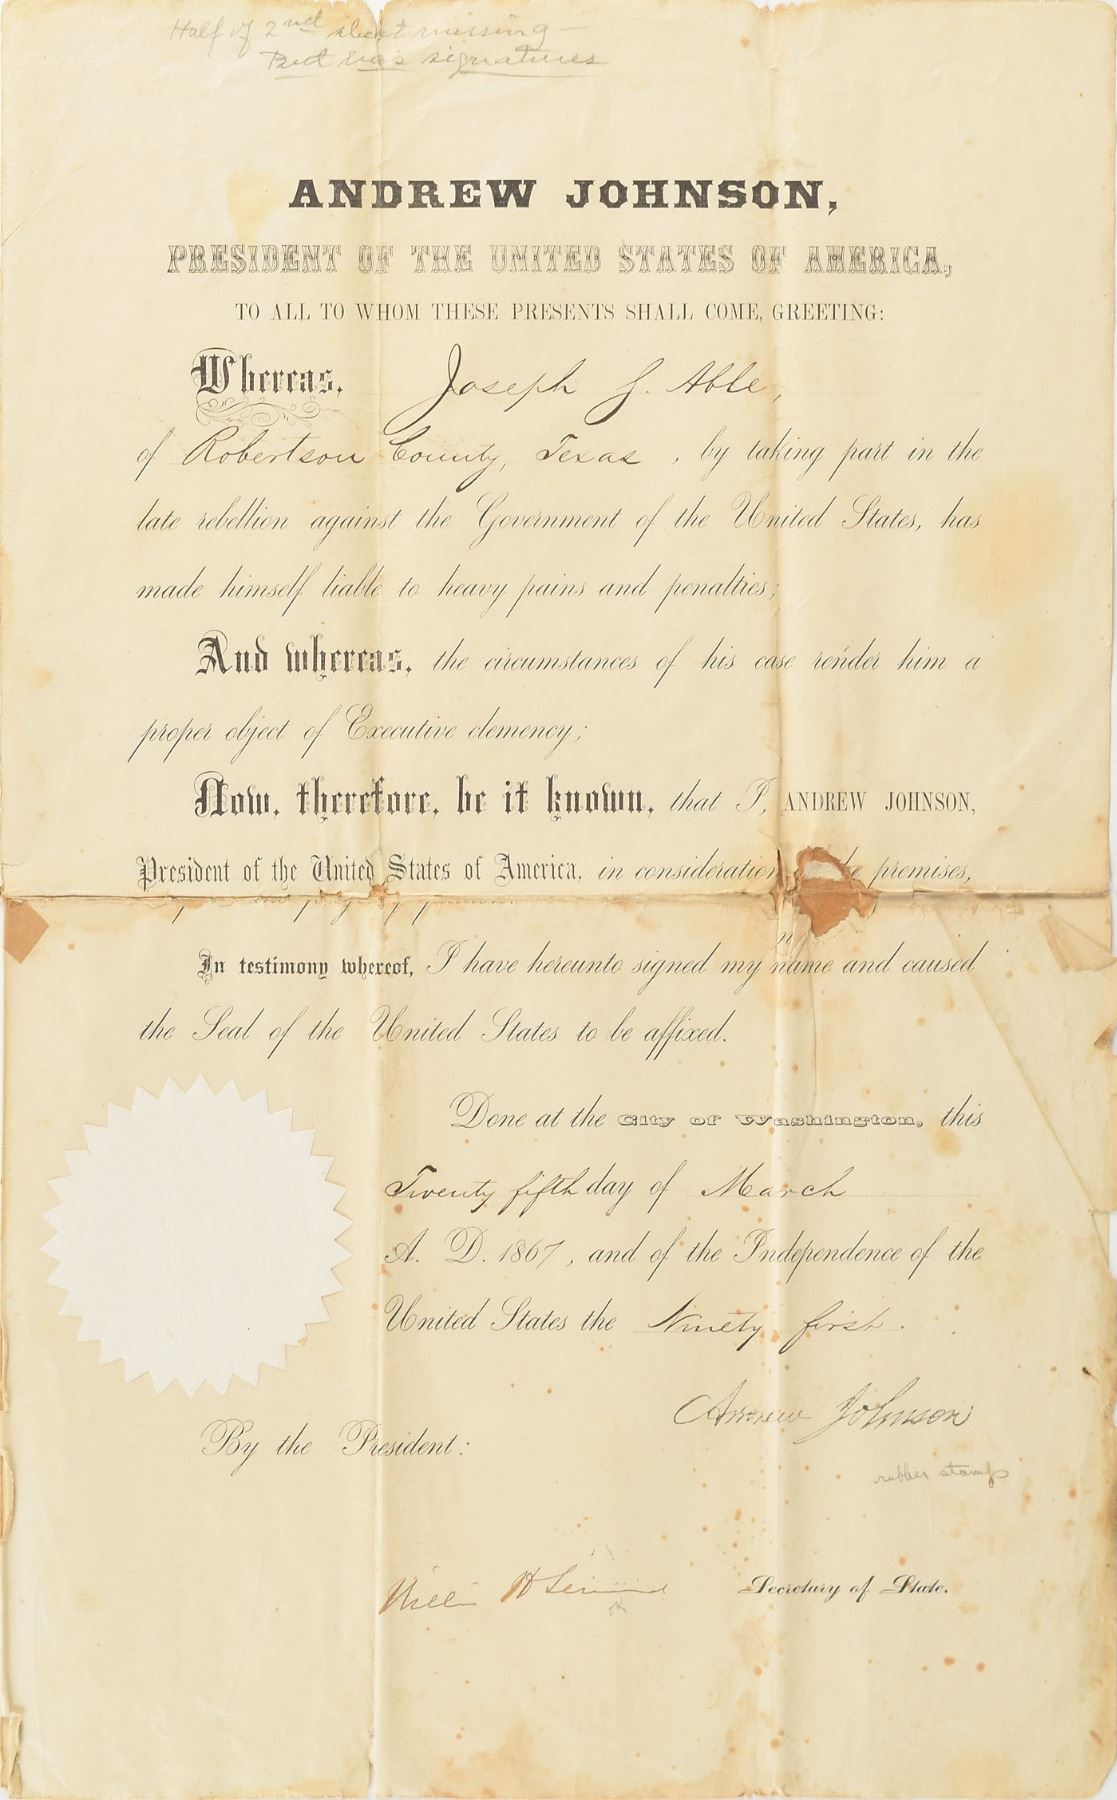 Half of 2nd sheet missing –
But has signatures
ANDREW JOHNSON,
PRESIDENT OF THE UNITED STATES OF AMERICA,
TO ALL TO WHOM THESE PRESENTS SHALL COME, GREETING:
Whereas, Joseph G. Able,
of Robertson County, Texas, by taking part in the
late rebellion against the Government of the United States, has
made himself liable to heavy pains and penalties;
And whereas, the circumstances of his case render him a
proper object of Executive clemency;
Now, therefore, be it known, that I, ANDREW JOHNSON,
President of the United States of America, in consideration premises,
In testimony whereof, I have hereunto signed my name and caused
the Seal of the United States to be affixed.
Done at the City of Washington, this
Twenty fifth day of March
A. D. 1867, and of the Independence of the
United States the Ninety first.
Andrew Johnson
rubber stamp
By the President:
William H Seward
ok
Secretary of State.